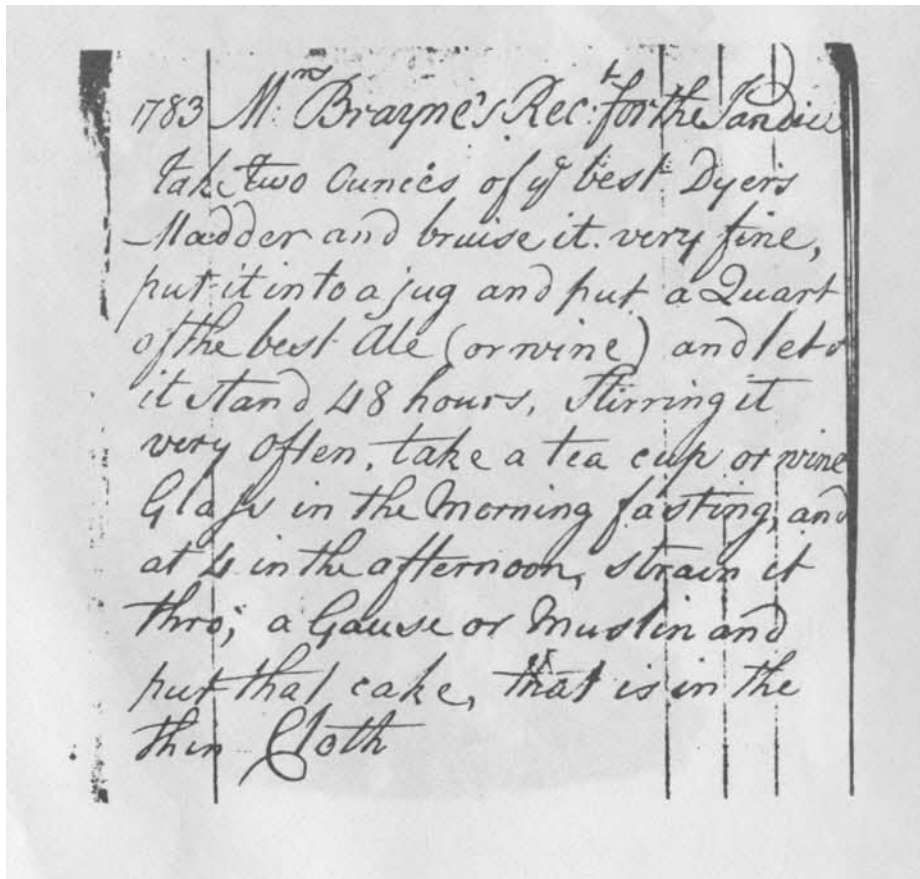 1783 Mrs Brayne's Rect for the Jandice
take two Ounces of ye best Dyers
Madder and bruise it very fine,
put it into a jug and put a Quart
of the best Ale (or wine) and let
it stand 48 hours, Stirring it
very often, take a tea cup or wine
Glass in the Morning fasting, and
at 4 in the afternoon, strain it
thro', a Gause or Muslin and
put that cake, that is in the
thin Cloth